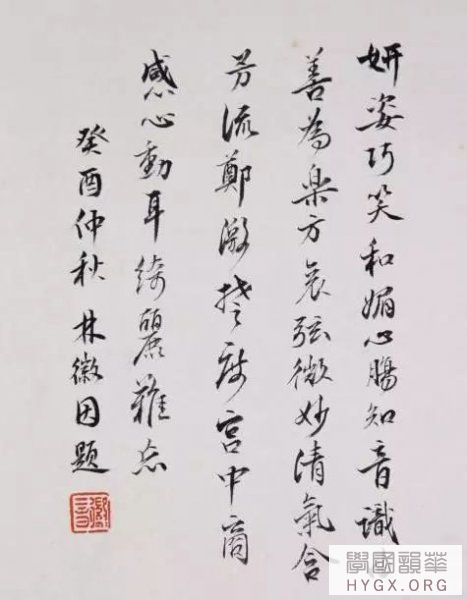 妍姿巧笑和媚心腸知音識
善為樂方哀弦微妙清氣含
芳流鄭激楚度宮中商
感心動耳綺麗難忘
癸酉仲秋 林徽因題
華韻國學
HYGX.ORG